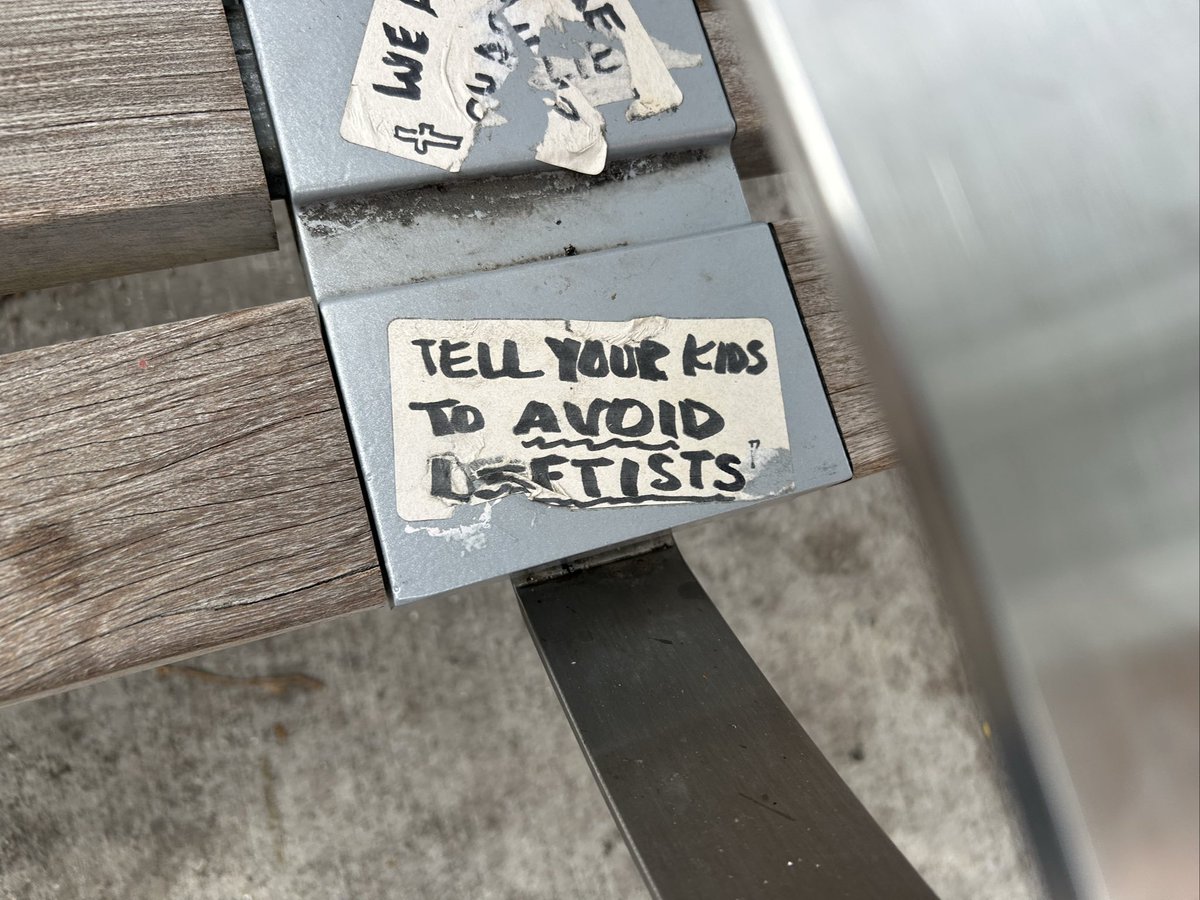 WE A
TELL YOUR KIDS
TO AVOID
LEFTISTS